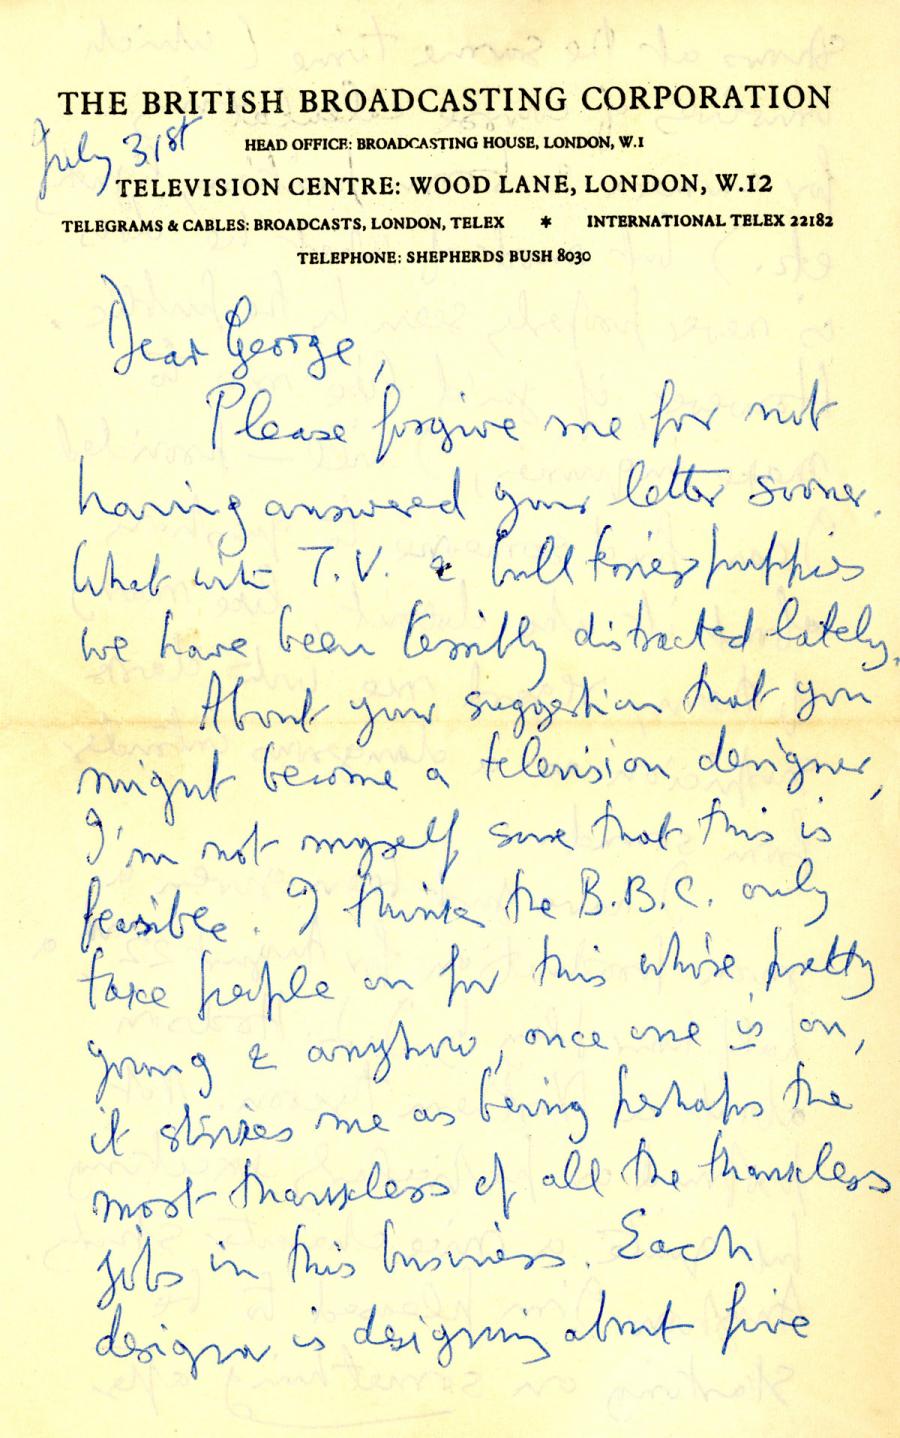 THE BRITISH BROADCASTING CORPORATION
July 31st
HEAD OFFICE: BROADCASTING HOUSE, LONDON, W.1
TELEVISION CENTRE: WOOD LANE, LONDON, W.12
TELEGRAMS & CABLES: BROADCASTS, LONDON, TELEX * INTERNATIONAL TELEX 22182
TELEPHONE: SHEPHERDS BUSH 8030
Dear George,
Please forgive me for not
having answered your letter sooner.
What with T.V. & bull terrier puppies
we have been terribly distracted lately.
About your suggestion that you
might become a television designer,
I'm not myself sure that this is
feasible. I think the B.B.C. only
take people on for this who're pretty
young & anyhow, once one is on,
it strikes me as being perhaps the
most thankless of all the thankless
jobs in this business. Each
designer is designing about five